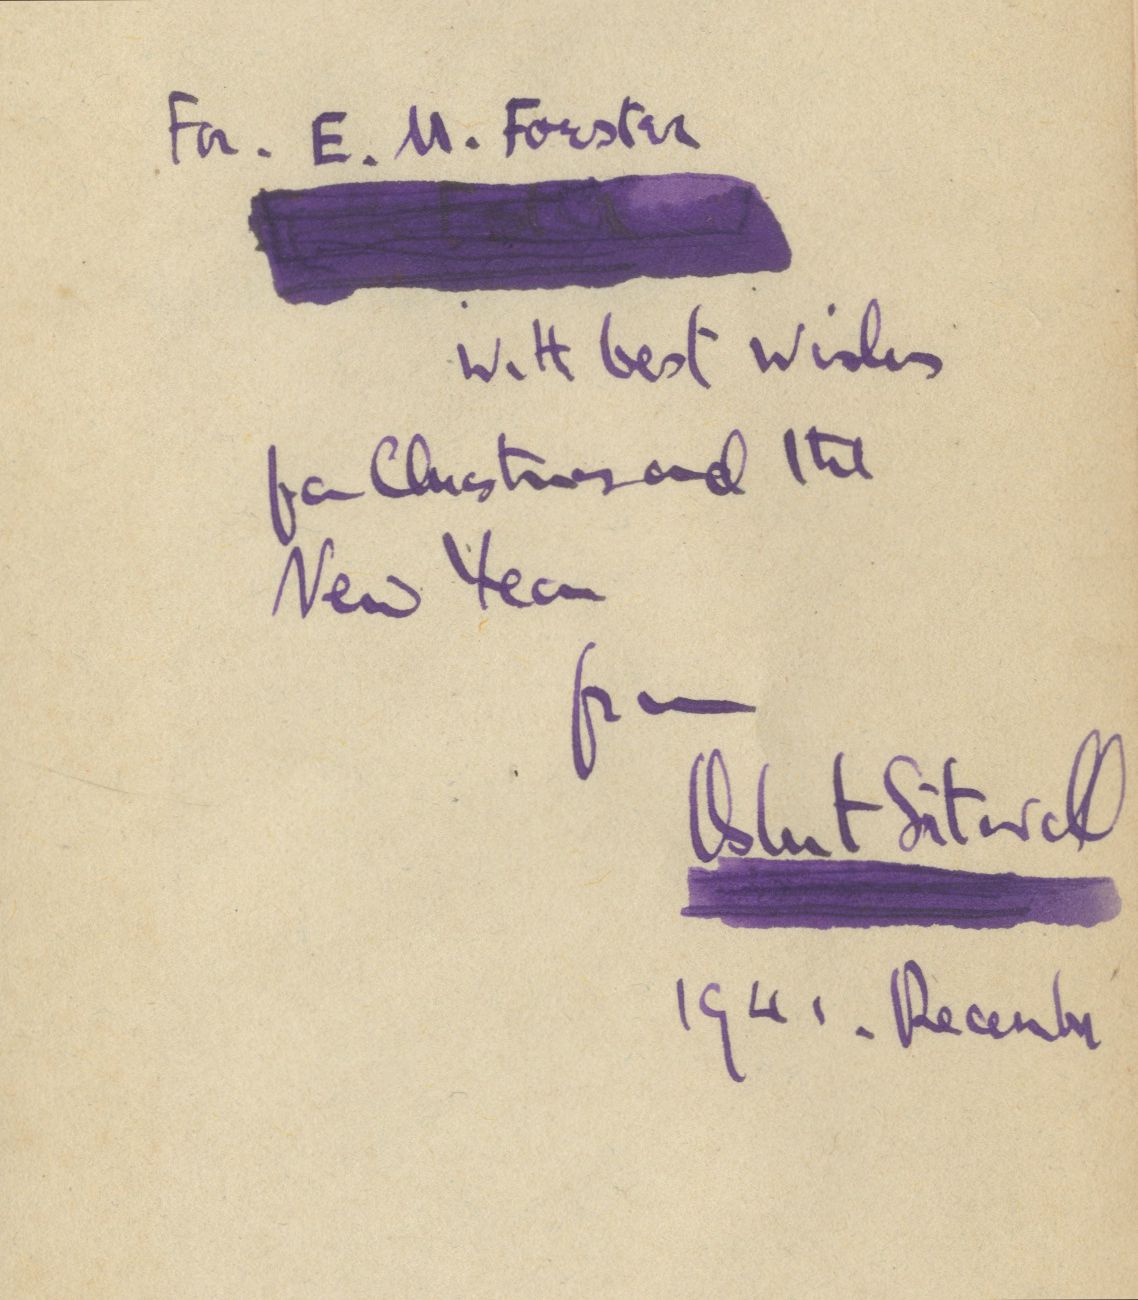 For. E. M. Forster
with best wishes
for Christmas and the
New Year
from
Osbert Sitwell
1941. December